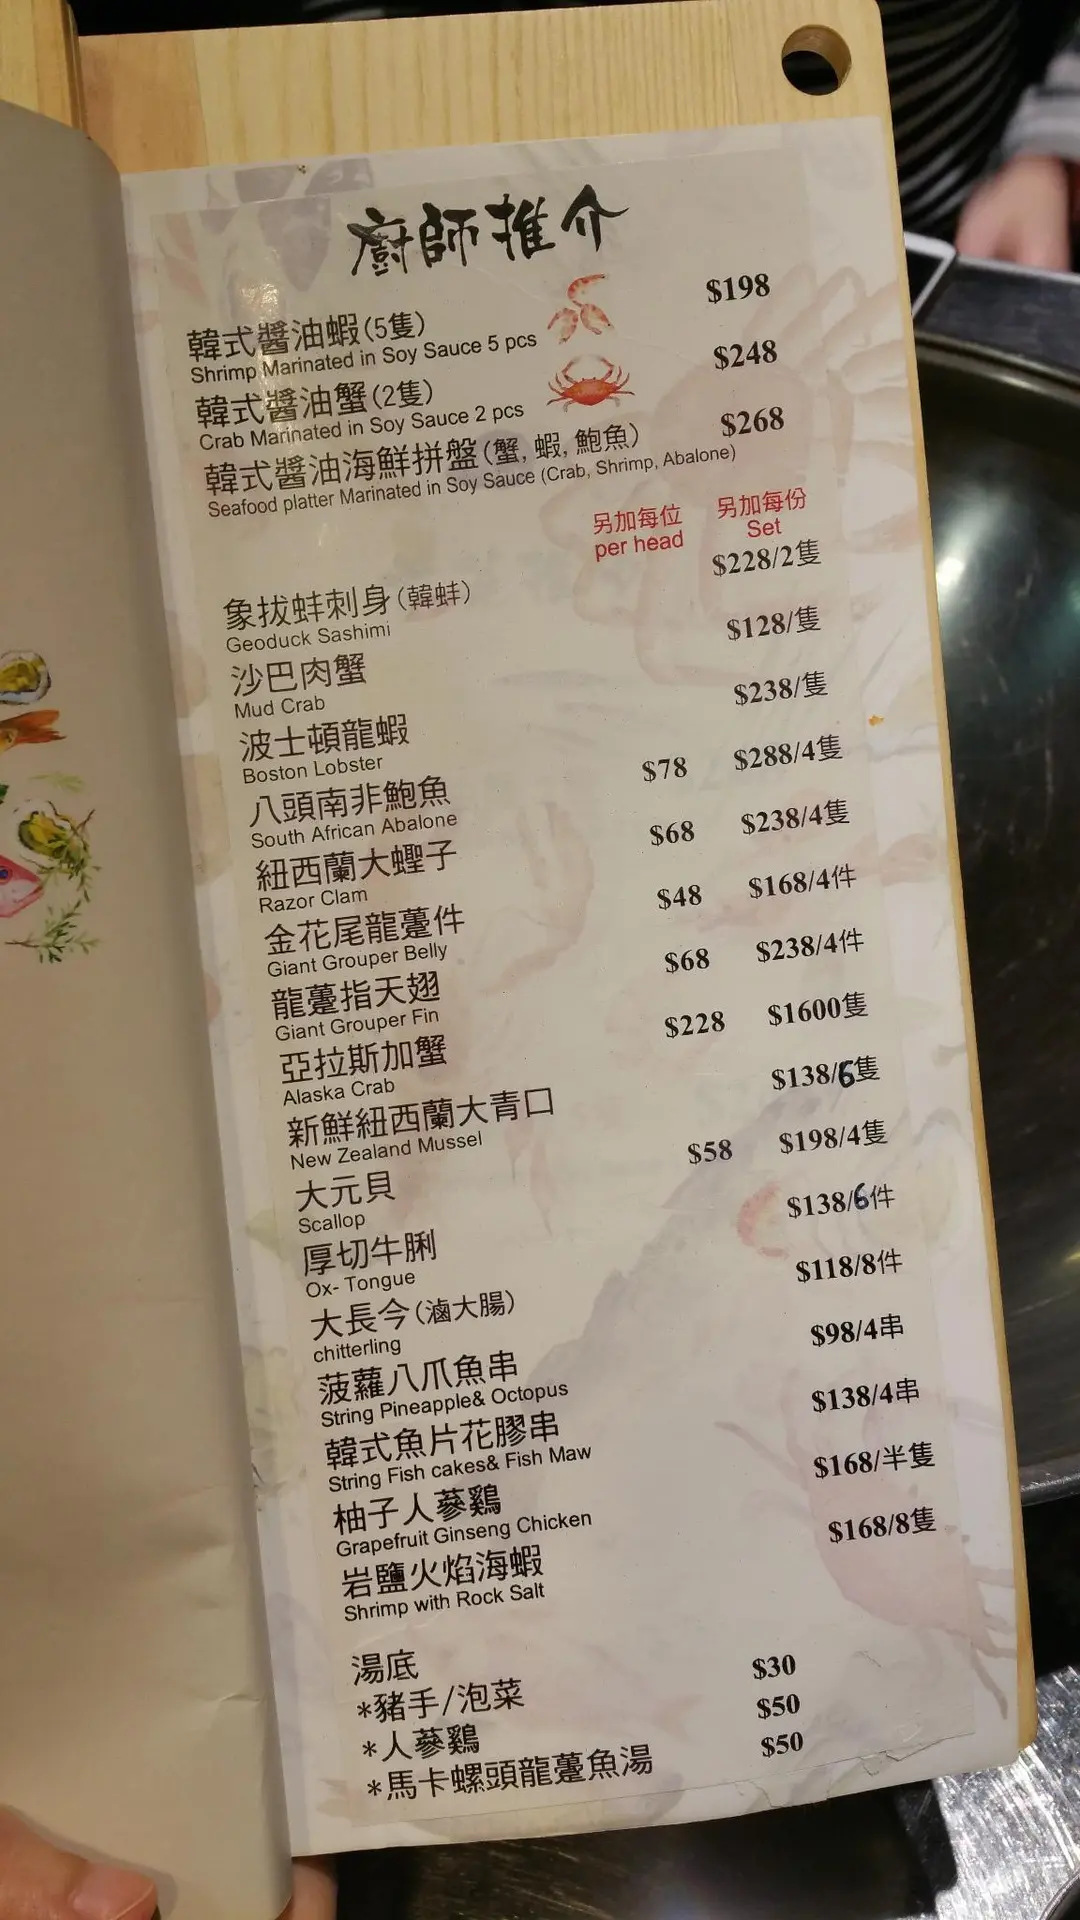 廚師推介
韓式醬油蝦(5隻) $198
Shrimp Marinated in Soy Sauce 5 pcs
韓式醬油蟹(2隻) $248
Crab Marinated in Soy Sauce 2 pcs
韓式醬油海鮮拼盤(蟹, 蝦, 鮑魚) $268
Seafood platter Marinated in Soy Sauce (Crab, Shrimp, Abalone)
另加每位 另加每份
per head Set
象拔蚌刺身(韓蚌) $228/2隻
Geoduck Sashimi
沙巴肉蟹 $128/隻
Mud Crab
波士頓龍蝦 $238/隻
Boston Lobster
八頭南非鮑魚 $78 $288/4隻
South African Abalone
紐西蘭大蟶子 $68 $238/4隻
Razor Clam
金花尾龍躉件 $48 $168/4件
Giant Grouper Belly
龍躉指天翅 $68 $238/4件
Giant Grouper Fin
亞拉斯加蟹 $228 $1600隻
Alaska Crab
新鮮紐西蘭大青口 $138/6隻
New Zealand Mussel
大元貝 $58 $198/4隻
Scallop
厚切牛脷 $138/6件
Ox- Tongue
大長今(滷大腸) $118/8件
chitterling
菠蘿八爪魚串 $98/4串
String Pineapple& Octopus
韓式魚片花膠串 $138/4串
String Fish cakes& Fish Maw
柚子人蔘鷄 $168/半隻
Grapefruit Ginseng Chicken
岩鹽火焰海蝦 $168/8隻
Shrimp with Rock Salt
湯底
*豬手/泡菜 $30
*人蔘鷄 $50
*馬卡螺頭龍躉魚湯 $50